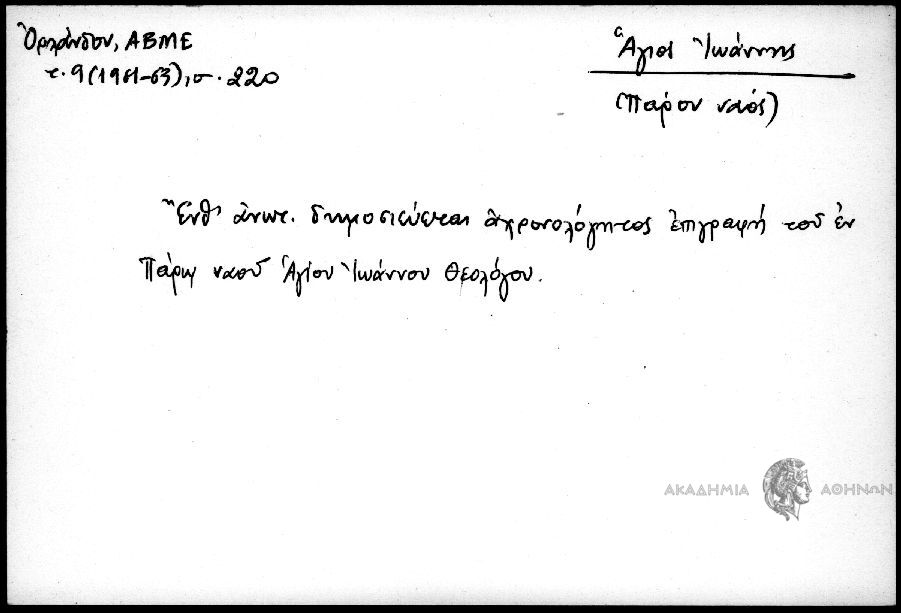 Ὀρλάνδου, ΑΒΜΕ
τ. 9 (1961-63), σ. 220
Ἅγιος Ἰωάννης
(Πάρου ναός)
Ἔνθ' ἀνωτ. δημοσιεύεται ἀχρονολόγητος ἐπιγραφή τοῦ ἐν
Πάρῳ ναοῦ Ἁγίου Ἰωάννου Θεολόγου.
ΑΚΑΔΗΜΙΑ ΑΘΗΝΩΝ